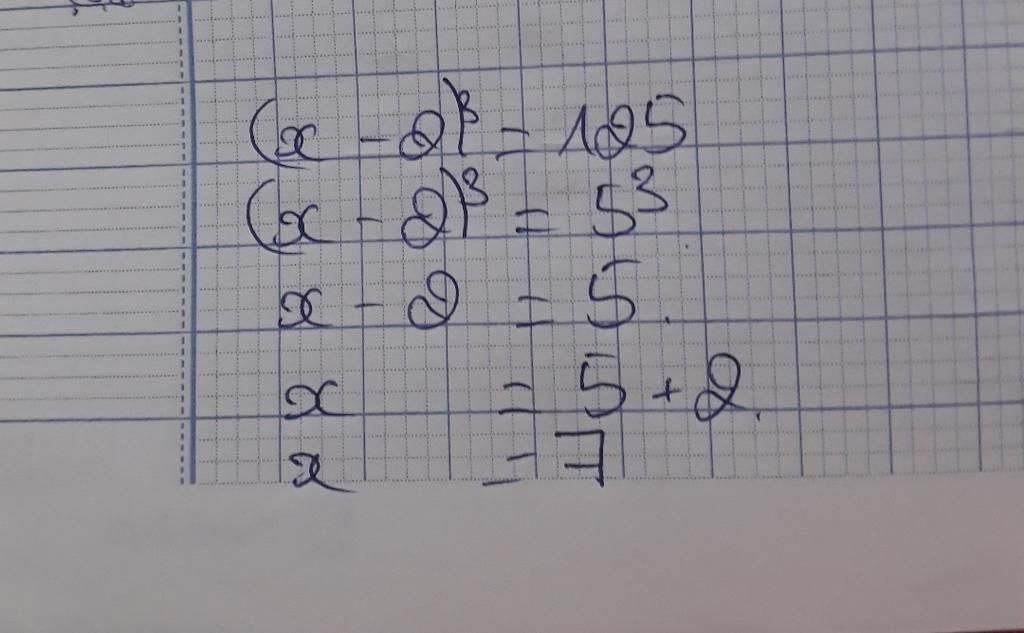 (x - 2)³ = 125
(x - 2)³ = 5³
x - 2 = 5.
x = 5 + 2.
x = 7